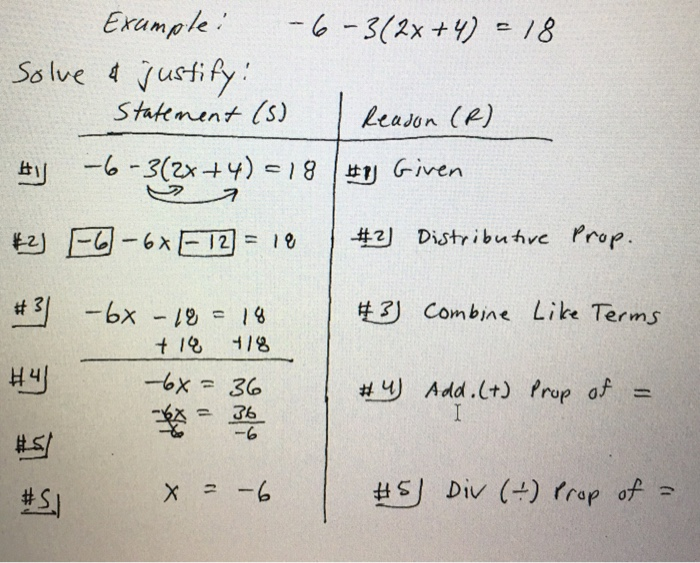 Example: -6 - 3(2x + 4) = 18
Solve & justify:
Statement (S) Reason (R)
#1) -6 - 3(2x + 4) = 18 #1) Given
#2) -6 - 6x - 12 = 18 #2) Distributive Prop.
#3) -6x - 18 = 18 #3) Combine Like Terms
+ 18 +18
#4) -6x = 36 #4) Add.(+) Prop of =
-6x/-6 = 36/-6
#5)
#5) x = -6 #5) Div (÷) Prop of =